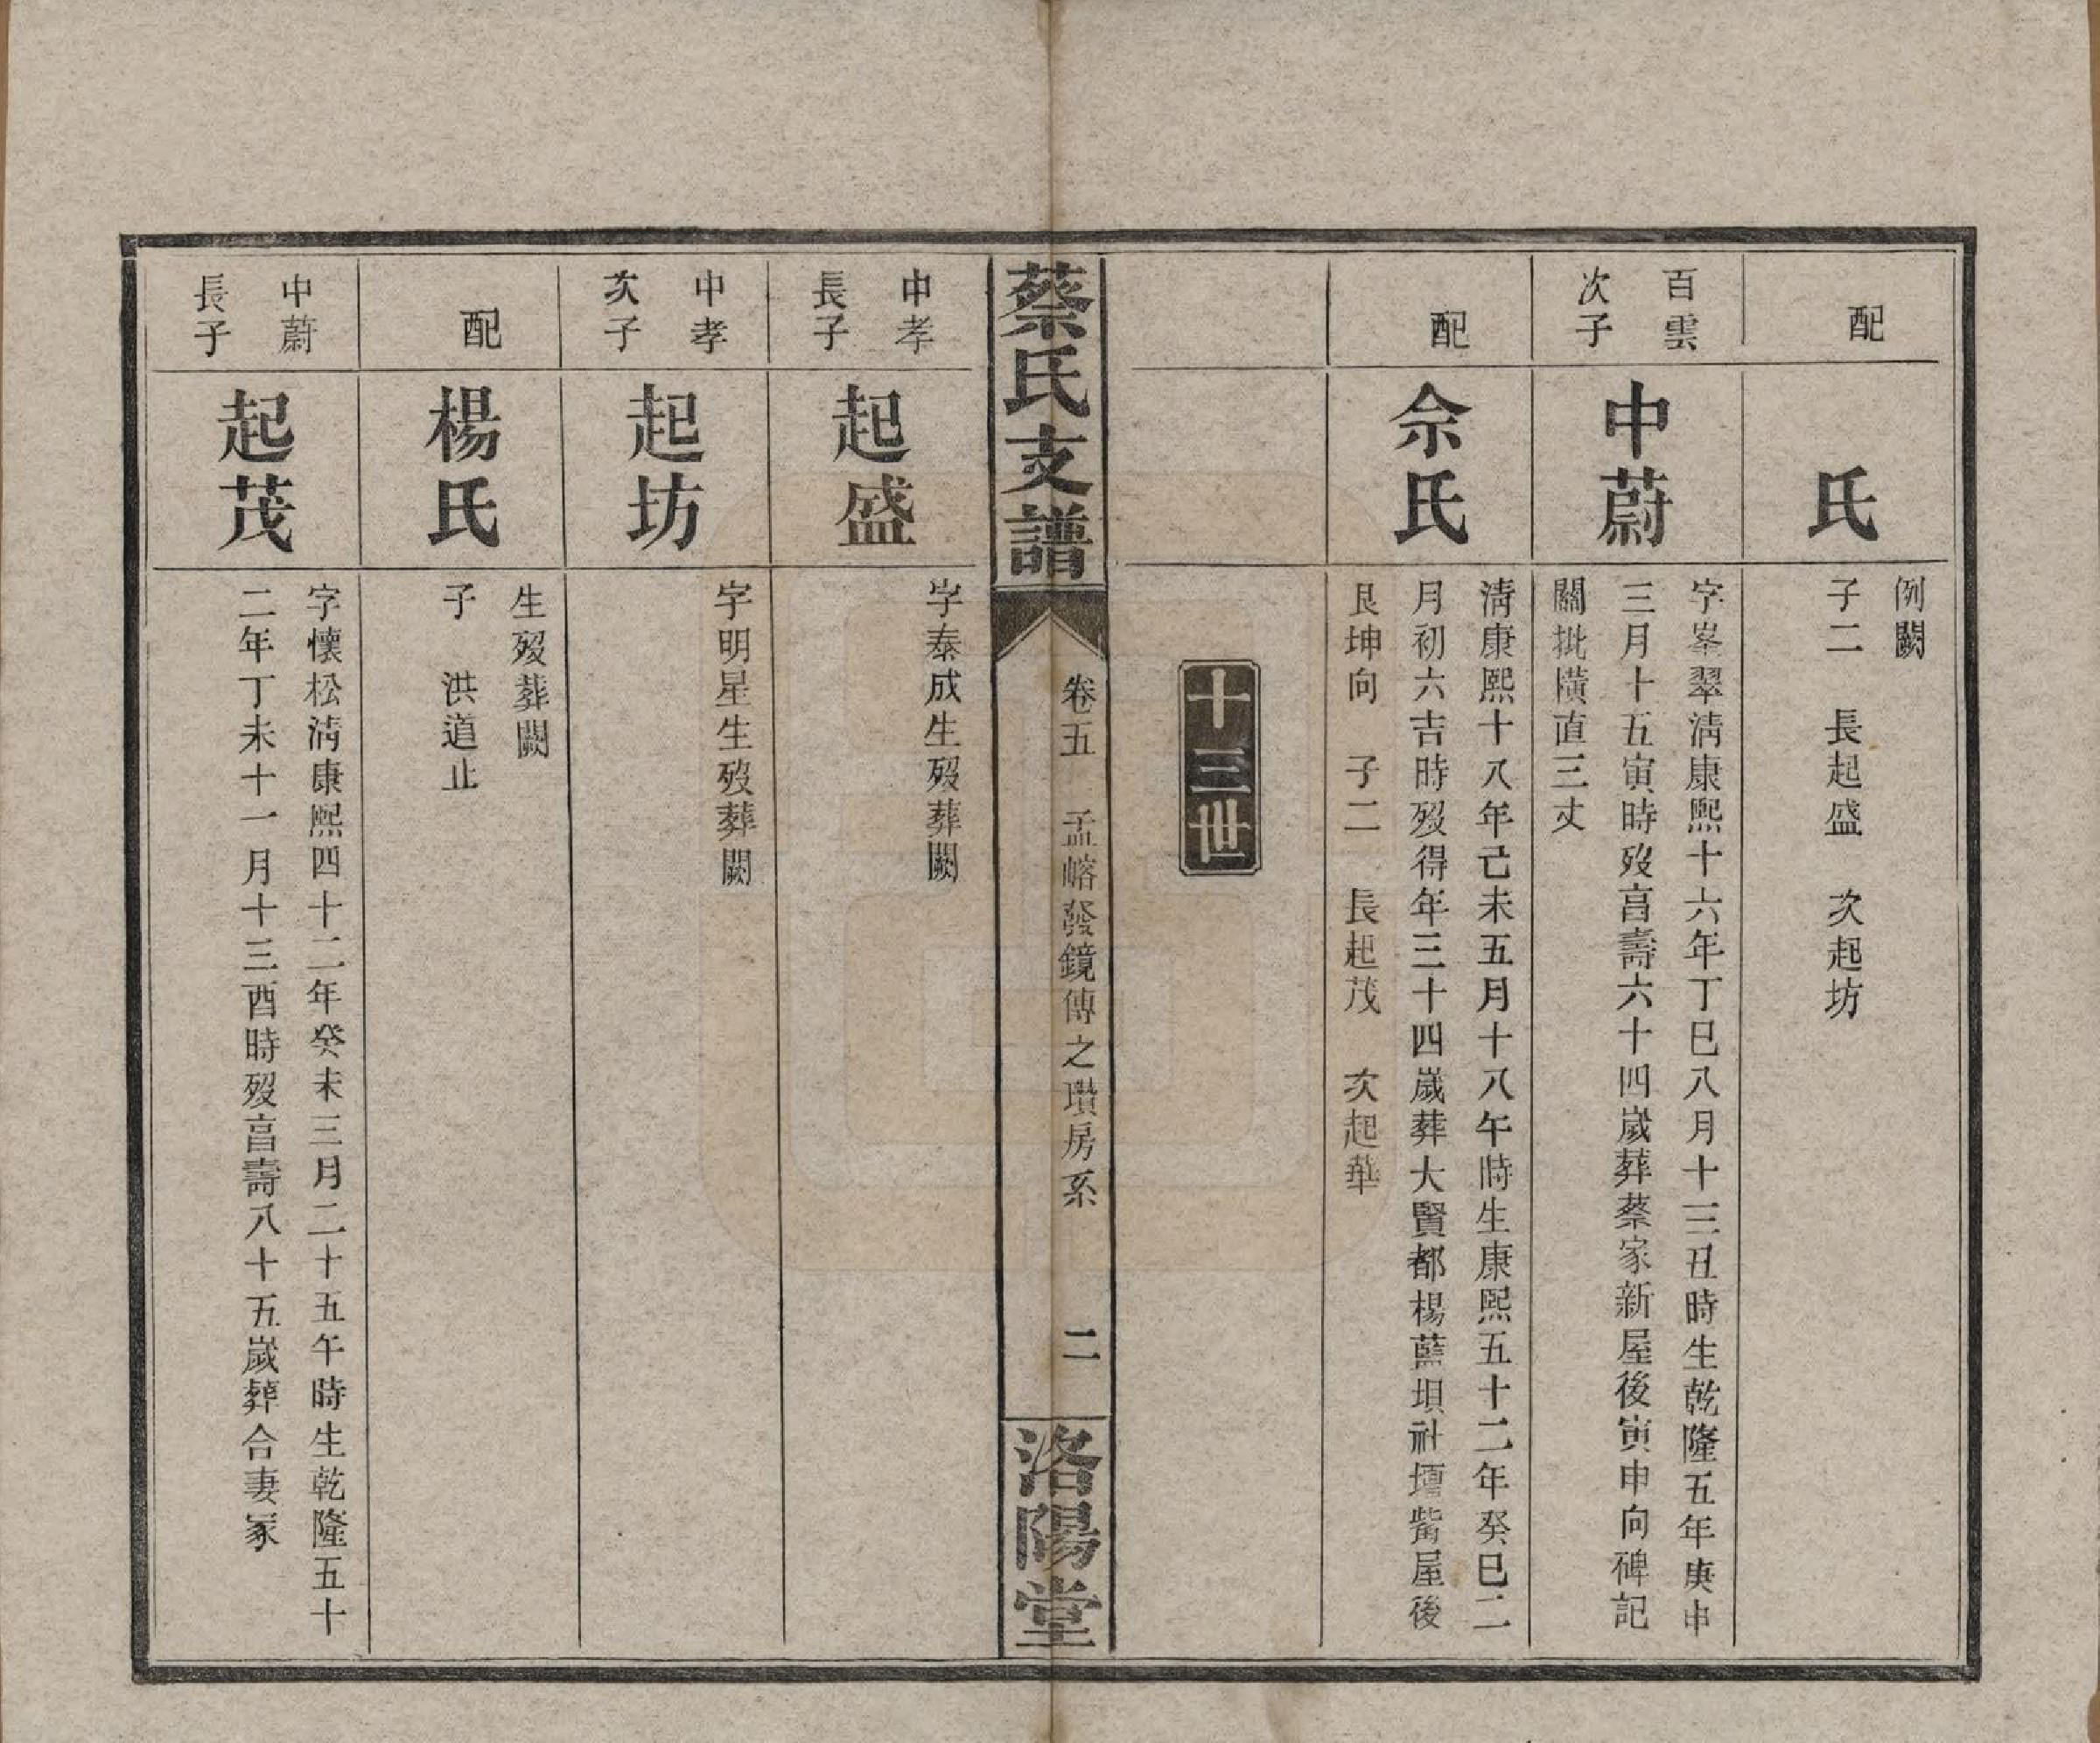 配
氏
例闕
子二　長起盛　次起坊
百雲
次子
中蔚
字峯翠淸康熙十六年丁巳八月十三丑時生乾隆五年庚申
三月十五寅時歿亯壽六十四歲葬蔡家新屋後寅申向碑記
關批橫直三丈
配
佘氏
淸康熙十八年己未五月十八午時生康熙五十二年癸巳二
月初六吉時歿得年三十四歲葬大賢都楊藍垻社壇觜屋後
艮坤向　子二　長起茂　次起華
十三世
蔡氏支譜
卷五　孟嵱發鏡傳之瓚房系
二
洛陽堂
中孝
長子
起盛
字泰成生歿葬闕
中孝
次子
起坊
字明星生歿葬闕
配
楊氏
生歿葬闕
子　洪道止
中蔚
長子
起茂
字懷松淸康熙四十二年癸未三月二十五午時生乾隆五十
二年丁未十一月十三酉時歿亯壽八十五歲葬合妻冢